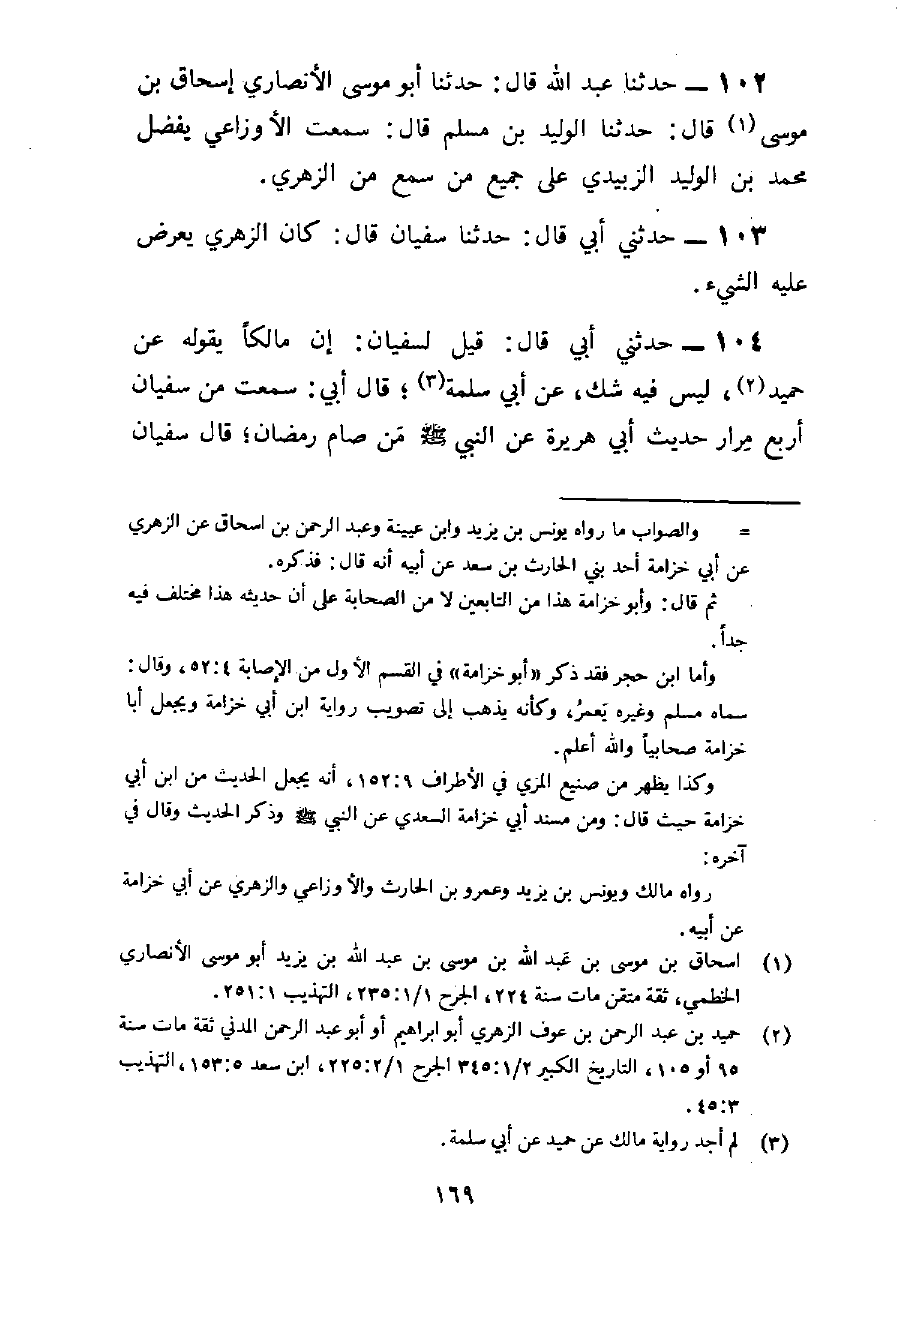 ١٠٢ ــ حدثنا عبد الله قال: حدثنا أبو موسى الأنصاري إسحاق بن
موسى(١) قال: حدثنا الوليد بن مسلم قال: سمعت الأوزاعي يفضل
محمد بن الوليد الزبيدي على جميع من سمع من الزهري.
١٠٣ ــ حدثني أبي قال: حدثنا سفيان قال: كان الزهري يعرض
عليه الشيء.
١٠٤ ــ حدثني أبي قال: قيل لسفيان: إن مالكاً يقوله عن
حميد(٢)، ليس فيه شك، عن أبي سلمة(٣)؛ قال أبي: سمعت من سفيان
أربع مِرار حديث أبي هريرة عن النبي ﷺ مَن صام رمضان؛ قال سفيان
= والصواب ما رواه يونس بن يزيد وابن عيينة وعبد الرحمن بن اسحاق عن الزهري
عن أبي خزامة أحد بني الحارث بن سعد عن أبيه أنه قال: فذكره.
ثم قال: وأبو خزامة هذا من التابعين لا من الصحابة على أن حديثه هذا مختلف فيه
جداً.
وأما ابن حجر فقد ذكر «أبو خزامة» في القسم الأول من الإصابة ٥٢:٤، وقال:
سماه مسلم وغيره يَعمرُ، وكأنه يذهب إلى تصويب رواية ابن أبي خزامة ويجعل أبا
خزامة صحابياً والله أعلم.
وكذا يظهر من صنيع المزي في الأطراف ١٥٢:٩، أنه يجعل الحديث من ابن أبي
خزامة حيث قال: ومن مسند أبي خزامة السعدي عن النبي ﷺ وذكر الحديث وقال في
آخره:
رواه مالك ويونس بن يزيد وعمرو بن الحارث والأوزاعي والزهري عن أبي خزامة
عن أبيه.
(١) اسحاق بن موسى بن عبد الله بن موسى بن عبد الله بن يزيد أبو موسى الأنصاري
الخطمي، ثقة متقن مات سنة ٢٢٤، الجرح ٢٣٥:١/١، التهذيب ٢٥١:١.
(٢) حميد بن عبد الرحمن بن عوف الزهري أبو ابراهيم أو أبو عبد الرحمن المدني ثقة مات سنة
٩٥ أو ١٠٥، التاريخ الكبير ٣٤٥:١/٢ الجرح ٢٢٥:٢/١، ابن سعد ١٥٣:٥، التهذيب
٤٥:٣.
(٣) لم أجد رواية مالك عن حميد عن أبي سلمة.
١٦٩